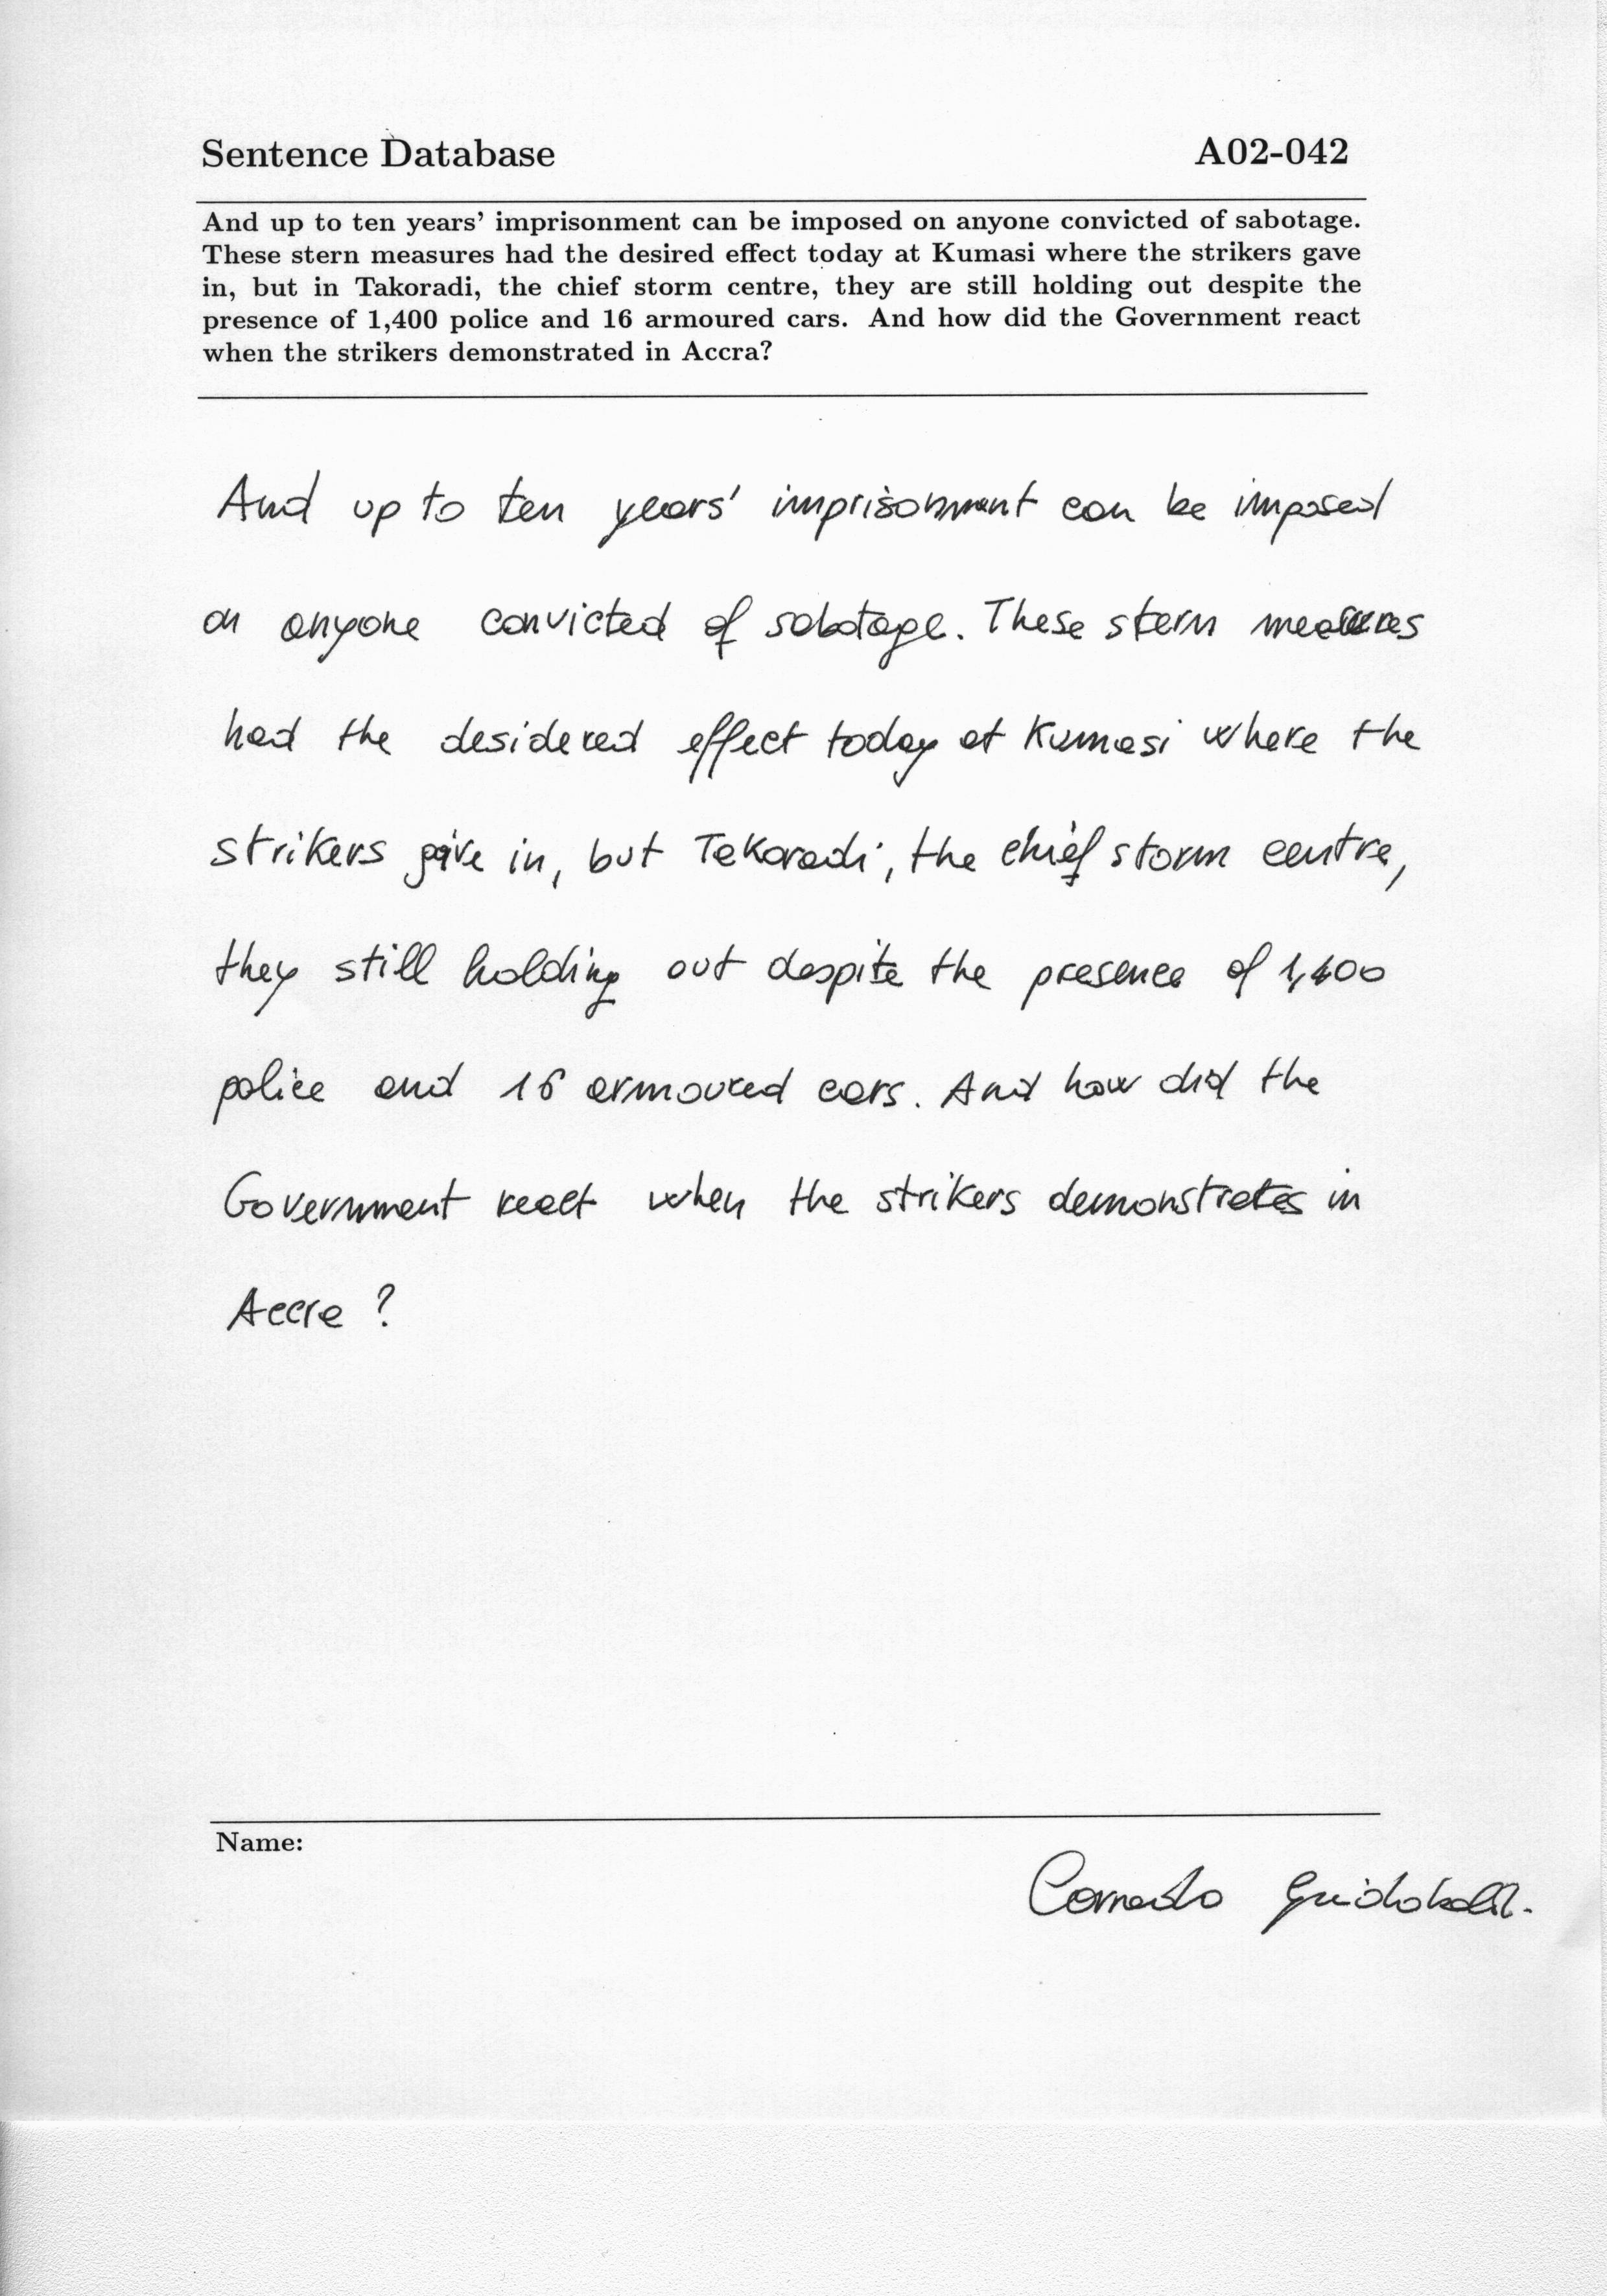 Sentence Database A02-042
And up to ten years’ imprisonment can be imposed on anyone convicted of sabotage.
These stern measures had the desired effect today at Kumasi where the strikers gave
in, but in Takoradi, the chief storm centre, they are still holding out despite the
presence of 1,400 police and 16 armoured cars. And how did the Government react
when the strikers demonstrated in Accra?
And up to ten years' imprisonment can be imposed
on anyone convicted of sabotage. These stern measures
had the desidered effect today at Kumasi where the
strikers give in, but Takoradi, the chief storm centre,
they still holding out despite the presence of 1,400
police and 16 armoured cars. And how did the
Government react when the strikers demonstrates in
Accra ?
Name:
Corrado